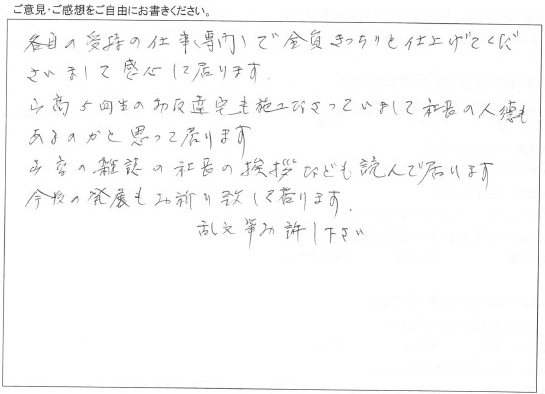 ご意見・ご感想をご自由にお書きください。
各自の受持の仕事(専門)で全員きっちりと仕上げてくだ
さいまして感心して居ります。
山高5回生のお友達宅も施工なさっていまして社長の人徳も
あるのかと思って居ります
山高の雑誌の社長の挨拶なども読んで居ります
今後の発展もお祈り致して居ります。
乱文筆お許し下さい